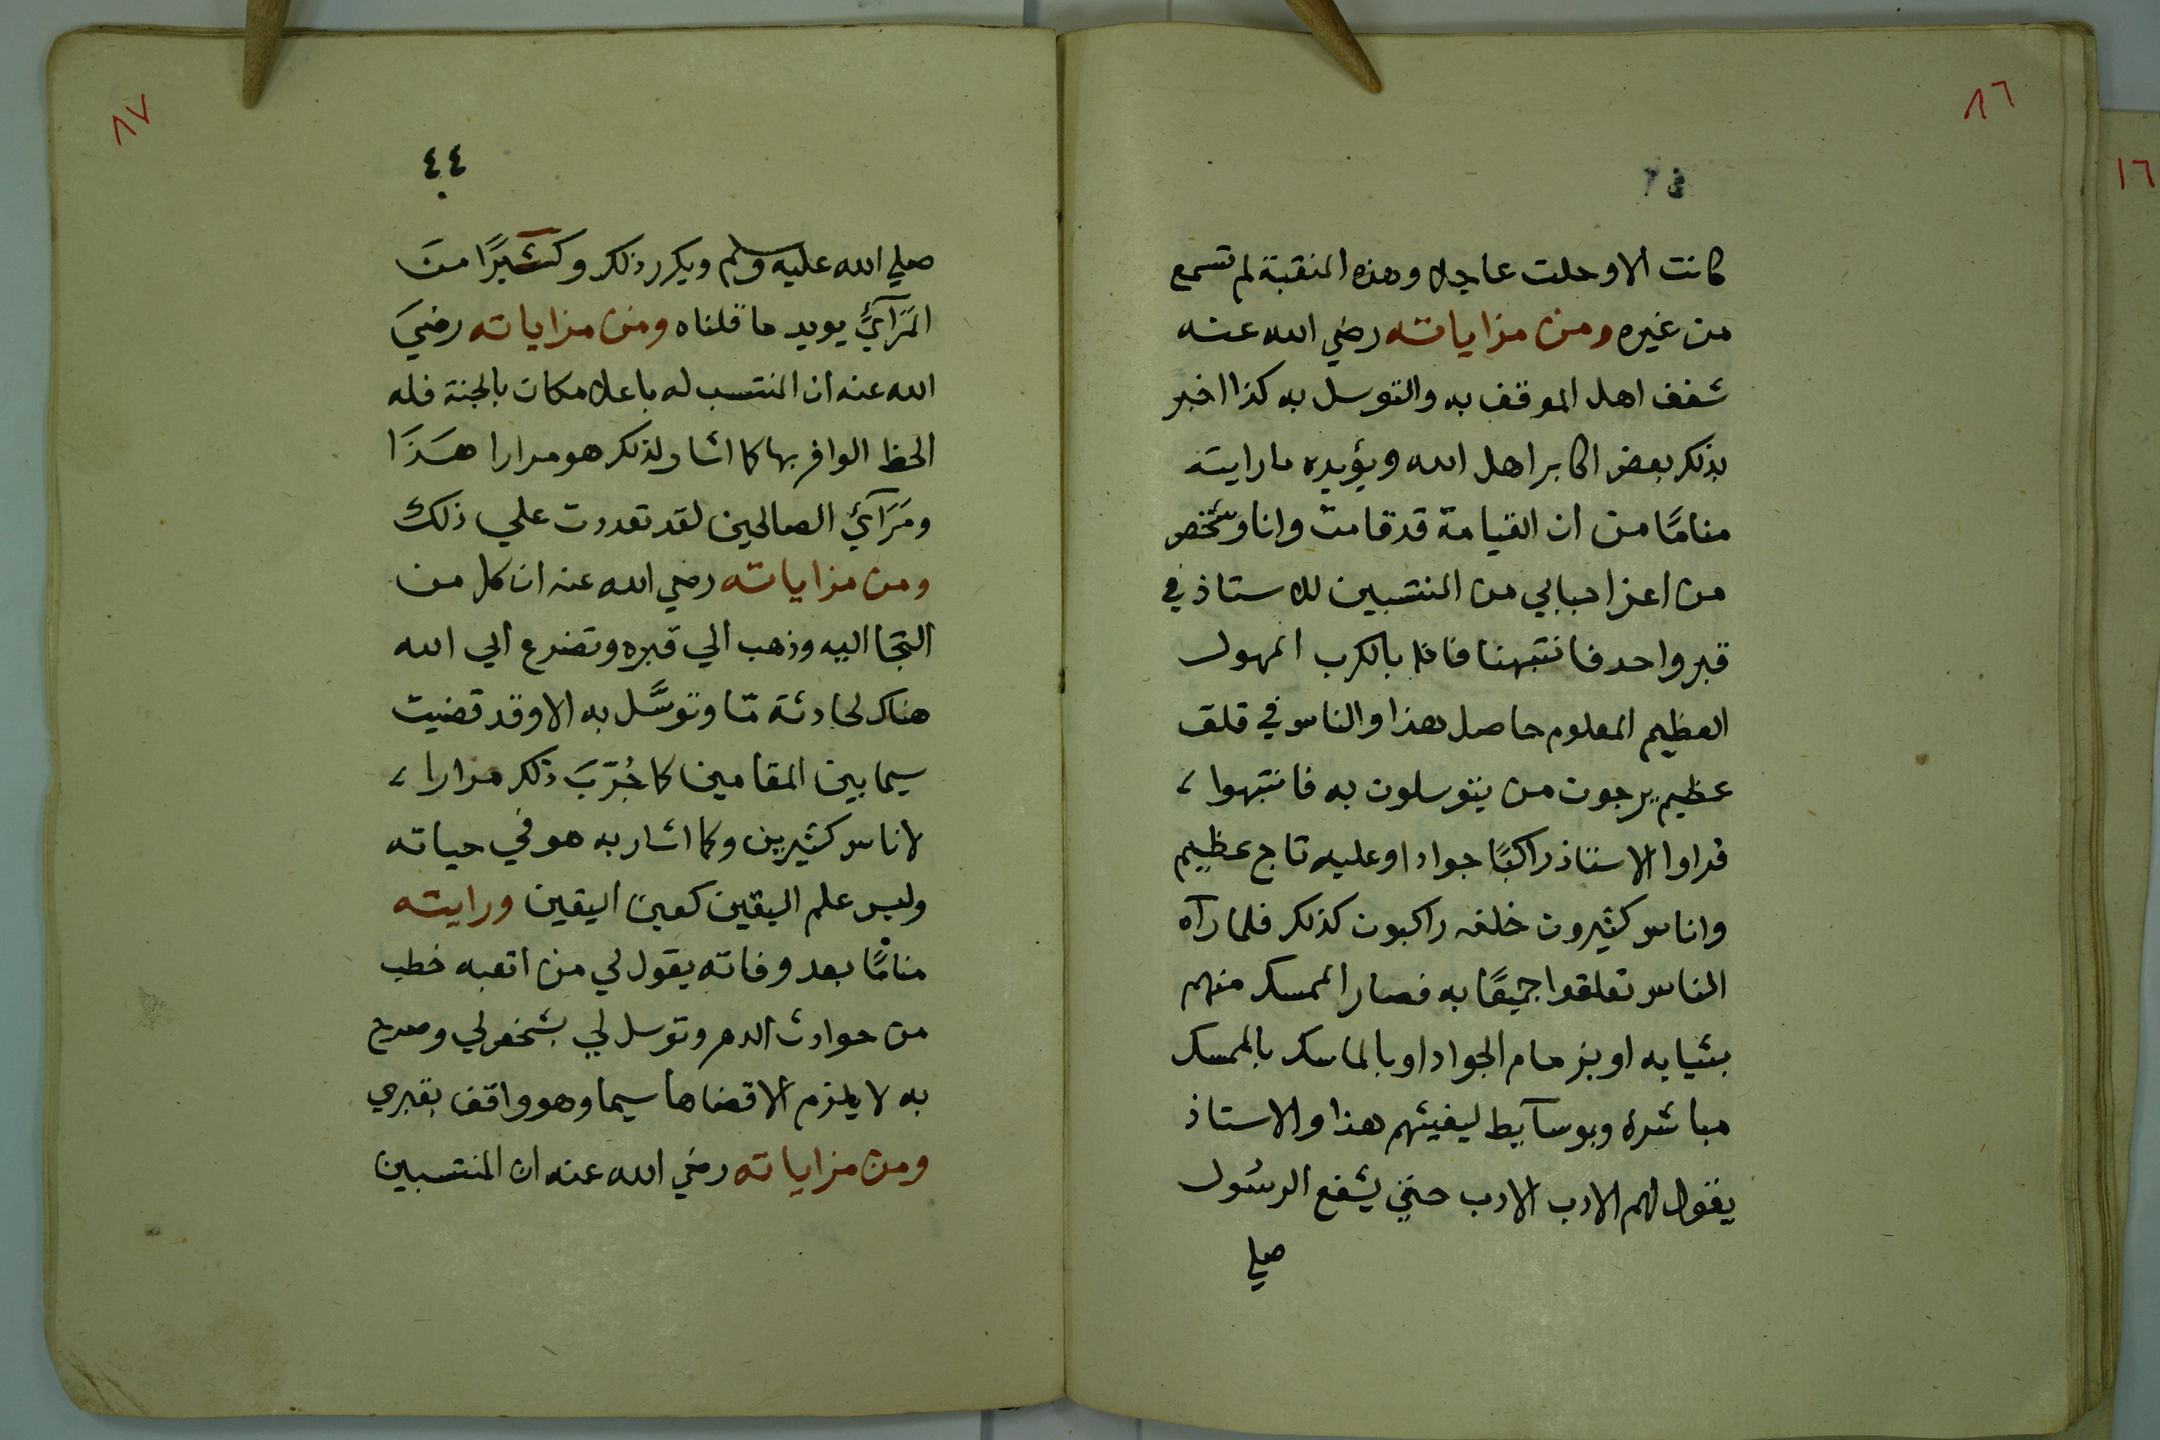 ٨٦
كانت الا وحلت عاجلا وهذه المنقبة لم تسمع
من غيره ومن مزاياته رضي الله عنه
شغف اهل الموقف به والتوسل به كذا اخبر
بذلك بعض اكابر اهل الله ويؤيده ما رايته
منامًا من ان القيامة قد قامت وانا وشخص
من اعز احبابي من المنتسبين للاستاذ في
قبر واحد فانتبهنا فاذا بالكرب المهول
العظيم المعلوم حاصل هذا والناس في قلق
عظيم يرجون من يتوسلون به فانتبهوا
فراوا الاستاذ راكبًا جوادا وعليه تاج عظيم
واناس كثيرون خلفه راكبون كذلك فلما رآه
الناس تعلقوا جميعًا به فصار الممسك منهم
بثيابه او بزمام الجواد او بالماسك بالممسك
مباشرة وبوسآيط ليغيثهم هذا والاستاذ
يقول لهم الادب الادب حتى يشفع الرسُول
صلي
١٦
٨٧
٤٤
صلي الله عليه وسلم ويكرر ذلك وكثيرًا منَ
المَرَآئيِّ يويد ما قلناه ومن مزاياته رضيَ
الله عنه ان المنتسب له باعلا مكان بالجنة فله
الحظ الوافر بها كما اشار لذلك هو مرارا هَذَا
ومَرَآئيُ الصالحين لقد تعددت علي ذلك
ومن مزاياته رضي الله عنه ان كل من
التجَا اليه وذهب الي قبره وتضرع الي الله
هناك لحادثة مّا وتوسَّل به الا وقد قضيت
سيما بين المقامين كما جُرّبَ ذلك مرارا
لاناس كثيرين وكما اشار به هو في حياته
وليس علم اليقين كعين اليقين ورايته
منامًا بعد وفاته يقول لي من اتعبه خطب
من حوادث الدهر وتوسل لي بشخص لي وصرح
به لا يلزم الا قضاها سيما وهو واقف بقبري
ومن مزاياته رضي الله عنه ان المنتسبين